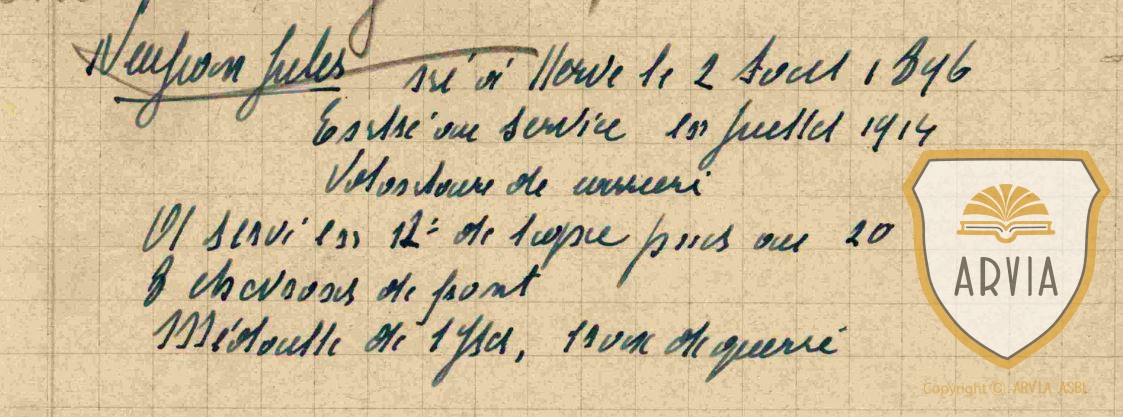 Neujean Jules né à Herve le 2 Aout 1896
Entré au service en Juillet 1914
Volontaire de carrière
A servi en 12è de ligne puis au 20
8 chevrons de front
Médaille de l'Yser, croix de guerre
ARVIA
Copyright © ARVIA ASBL